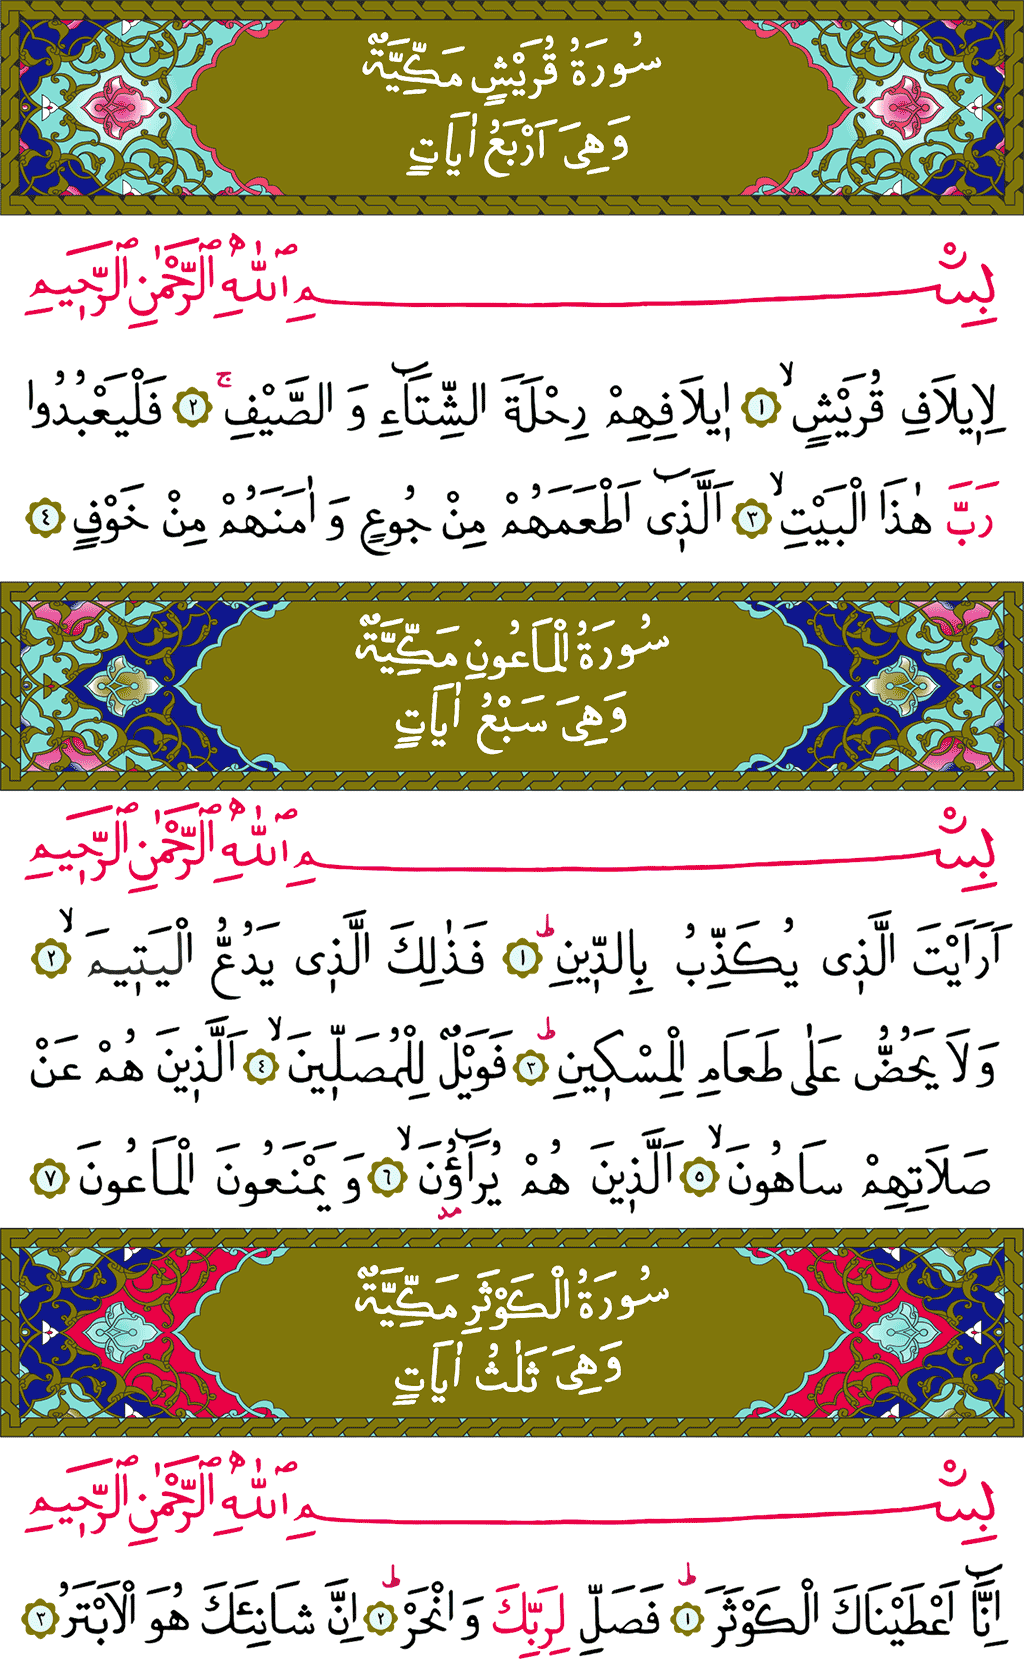 سُورَةُ قُرَيْشٍ مَكِّيَّةٌ
وَهِىَ اَرْبَعُ اٰيَاتٍ
بِسْمِ اللّٰهِ الرَّحْمٰنِ الرَّحٖيمِ
لِاٖيلَافِ قُرَيْشٍۙ ١ اٖيلَافِهِمْ رِحْلَةَ الشِّتَٓاءِ وَ الصَّيْفِۚ ٢ فَلْيَعْبُدُوا
رَبَّ هٰذَا الْبَيْتِۙ ٣ اَلَّذٖٓى اَطْعَمَهُمْ مِنْ جُوعٍ وَ اٰمَنَهُمْ مِنْ خَوْفٍ ٤
سُورَةُ الْمَاعُونِ مَكِّيَّةٌ
وَهِىَ سَبْعُ اٰيَاتٍ
بِسْمِ اللّٰهِ الرَّحْمٰنِ الرَّحٖيمِ
اَرَاَيْتَ الَّذٖى يُكَذِّبُ بِالدّٖينِؕ ١ فَذٰلِكَ الَّذٖى يَدُعُّ الْيَتٖيمَۙ ٢
وَلَا يَحُضُّ عَلٰى طَعَامِ الْمِسْكٖينِؕ ٣ فَوَيْلٌ لِلْمُصَلّٖينَۙ ٤ اَلَّذٖينَ هُمْ عَنْ
صَلَاتِهِمْ سَاهُونَۙ ٥ اَلَّذٖينَ هُمْ يُرَٓاؤُنَۙ ٦ وَ يَمْنَعُونَ الْمَاعُونَ ٧
سُورَةُ الْكَوْثَرِ مَكِّيَّةٌ
وَهِىَ ثَلٰثُ اٰيَاتٍ
بِسْمِ اللّٰهِ الرَّحْمٰنِ الرَّحٖيمِ
اِنَّٓا اَعْطَيْنَاكَ الْكَوْثَرَؕ ١ فَصَلِّ لِرَبِّكَ وَ انْحَرْؕ ٢ اِنَّ شَانِئَكَ هُوَ الْاَبْتَرُ ٣